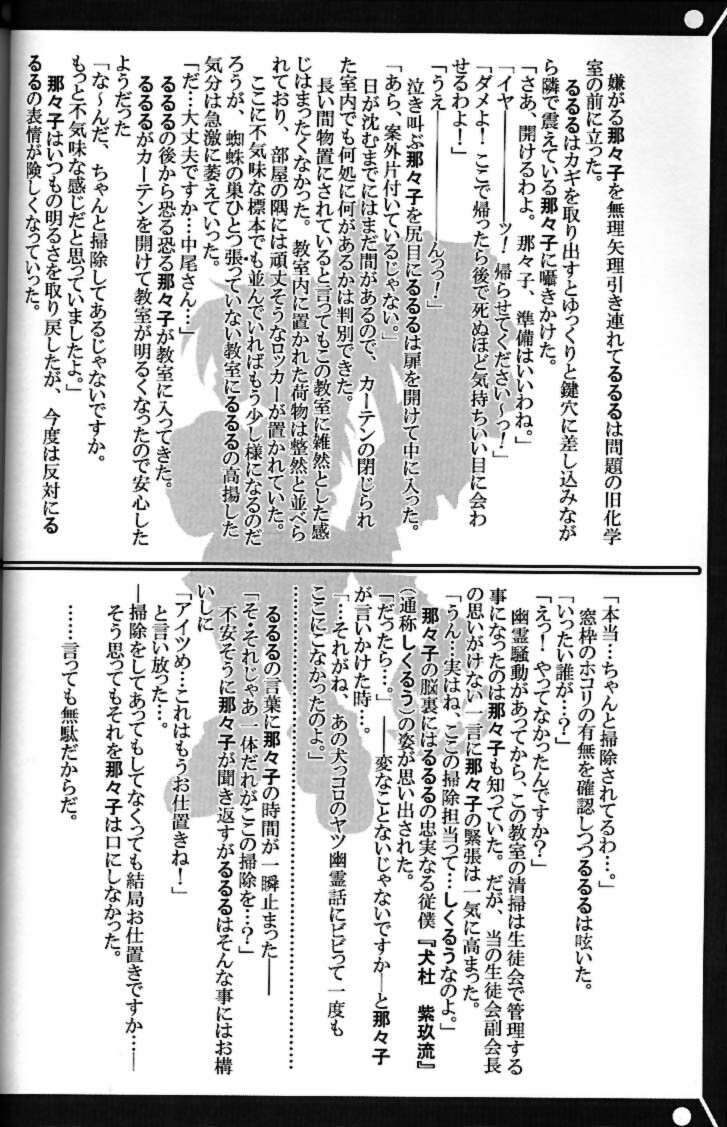 嫌がる那々子を無理矢理引き連れてるるるは問題の旧化学
室の前に立った。
るるるはカギを取り出すとゆっくりと鍵穴に差し込みなが
ら隣で震えている那々子に囁きかけた。
「さあ、開けるわよ。那々子、準備はいいわね。」
「イヤ――――ッ！帰らせてください～っ！」
「ダメよ！ここで帰ったら後で死ぬほど気持ちいい目に会わ
せるわよ！」
「うえ――――――んっっ！」
泣き叫ぶ那々子を尻目にるるるは扉を開けて中に入った。
「あら、案外片付いているじゃない。」
日が沈むまでにはまだ間があるので、カーテンの閉じられ
た室内でも何処に何があるかは判別できた。
長い間物置にされていると言ってもこの教室に雑然とした感
じはまったくなかった。教室内に置かれた荷物は整然と並べら
れており、部屋の隅には頑丈そうなロッカーが置かれていた。
ここに不気味な標本でも並んでいればもう少し様になるのだ
ろうが、蜘蛛の巣ひとつ張っていない教室にるるるの高揚した
気分は急激に萎えていった。
「だ…大丈夫ですか…中尾さん…」
るるるの後から恐る恐る那々子が教室に入ってきた。
るるるがカーテンを開けて教室が明るくなったので安心した
ようだった
「な～んだ、ちゃんと掃除してあるじゃないですか。
もっと不気味な感じだと思っていましたよ。」
那々子はいつもの明るさを取り戻したが、今度は反対にる
るるの表情が険しくなっていった。
「本当…ちゃんと掃除されてるわ…。」
窓枠のホコリの有無を確認しつつるるるは呟いた。
「いったい誰が…？」
「えっ！やってなかったんですか？」
幽霊騒動があってから、この教室の清掃は生徒会で管理する
事になったのは那々子も知っていた。だが、当の生徒会副会長
の思いがけない一言に那々子の緊張は一気に高まった。
「うん…実はね、ここの掃除担当って…しくるうなのよ。」
那々子の脳裏にはるるるの忠実なる従僕『犬杜　紫玖流』
（通称しくるう）の姿が思い出された。
「だったら…。」――変なことないじゃないですか―と那々子
が言いかけた時…。
「…それがね、あの犬っコロのヤツ幽霊話にビビって一度も
ここにこなかったのよ。」
…………………………………………………………
るるるの言葉に那々子の時間が一瞬止まった――
「そ・それじゃあ一体だれがここの掃除を…？」
不安そうに那々子が聞き返すがるるるはそんな事にはお構
いしに
「アイツめ…これはもうお仕置きね！」
と言い放った…。
―掃除をしてあってもしてなくっても結局お仕置きですか――
そう思ってもそれを那々子は口にしなかった。
……言っても無駄だからだ。